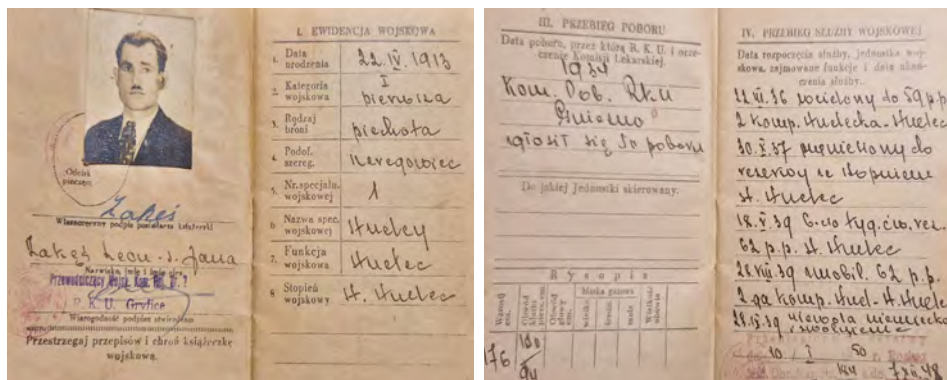 Odcisk
pieczęci
Zakęś
Własnoręczny podpis posiadacza książeczki
Zakęś Leon s. Jana
Nazwisko, imię i imię ojca
Przewodniczący Wojsk. Kom. Rej. Nr. 7
R. K. U. Gryfice
Wiarogodność podpisu stwierdzam
Przestrzegaj przepisów i chroń książeczkę
wojskową.
I. EWIDENCJA WOJSKOWA
1. Data urodzenia 22.IV.1913
2. Kategoria wojskowa I pierwsza
3. Rodzaj broni piechota
4. Podof. szereg. szeregowiec
5. Nr. specjaln. wojskowej 1
6. Nazwa spec. wojskowej strzelcy
7. Funkcja wojskowa strzelec
8. Stopień wojskowy st. strzelec
III. PRZEBIEG POBORU
Data poboru, przez którą R. K. U. i orze-
czenie Komisji Lekarskiej.
1934
Kom. Pob. Rku
zgłosił się do poboru
Do jakiej jednostki skierowany.
Rysopis
Wzrost cm. maska gazowa wielka średnia mała Wielkość obuwia
176
IV. PRZEBIEG SŁUŻBY WOJSKOWEJ
Data rozpoczęcia służby, jednostka woj-
skowa, zajmowane funkcje i data ukoń-
czenia służby.
wcielony do 59 p.p.
2 komp. strzelecka - strzelec
30.X.37 przeniesiony do
rezerwy w stopniu
st. strzelec
18.V.39 6-cio tyg. ćw. rez.
62 p.p. st. strzelec
28.VIII.39 mobil. 62 p.p.
2ga komp. strzel. st. strzelec
niewola niemiecka
10 / I 50 r.